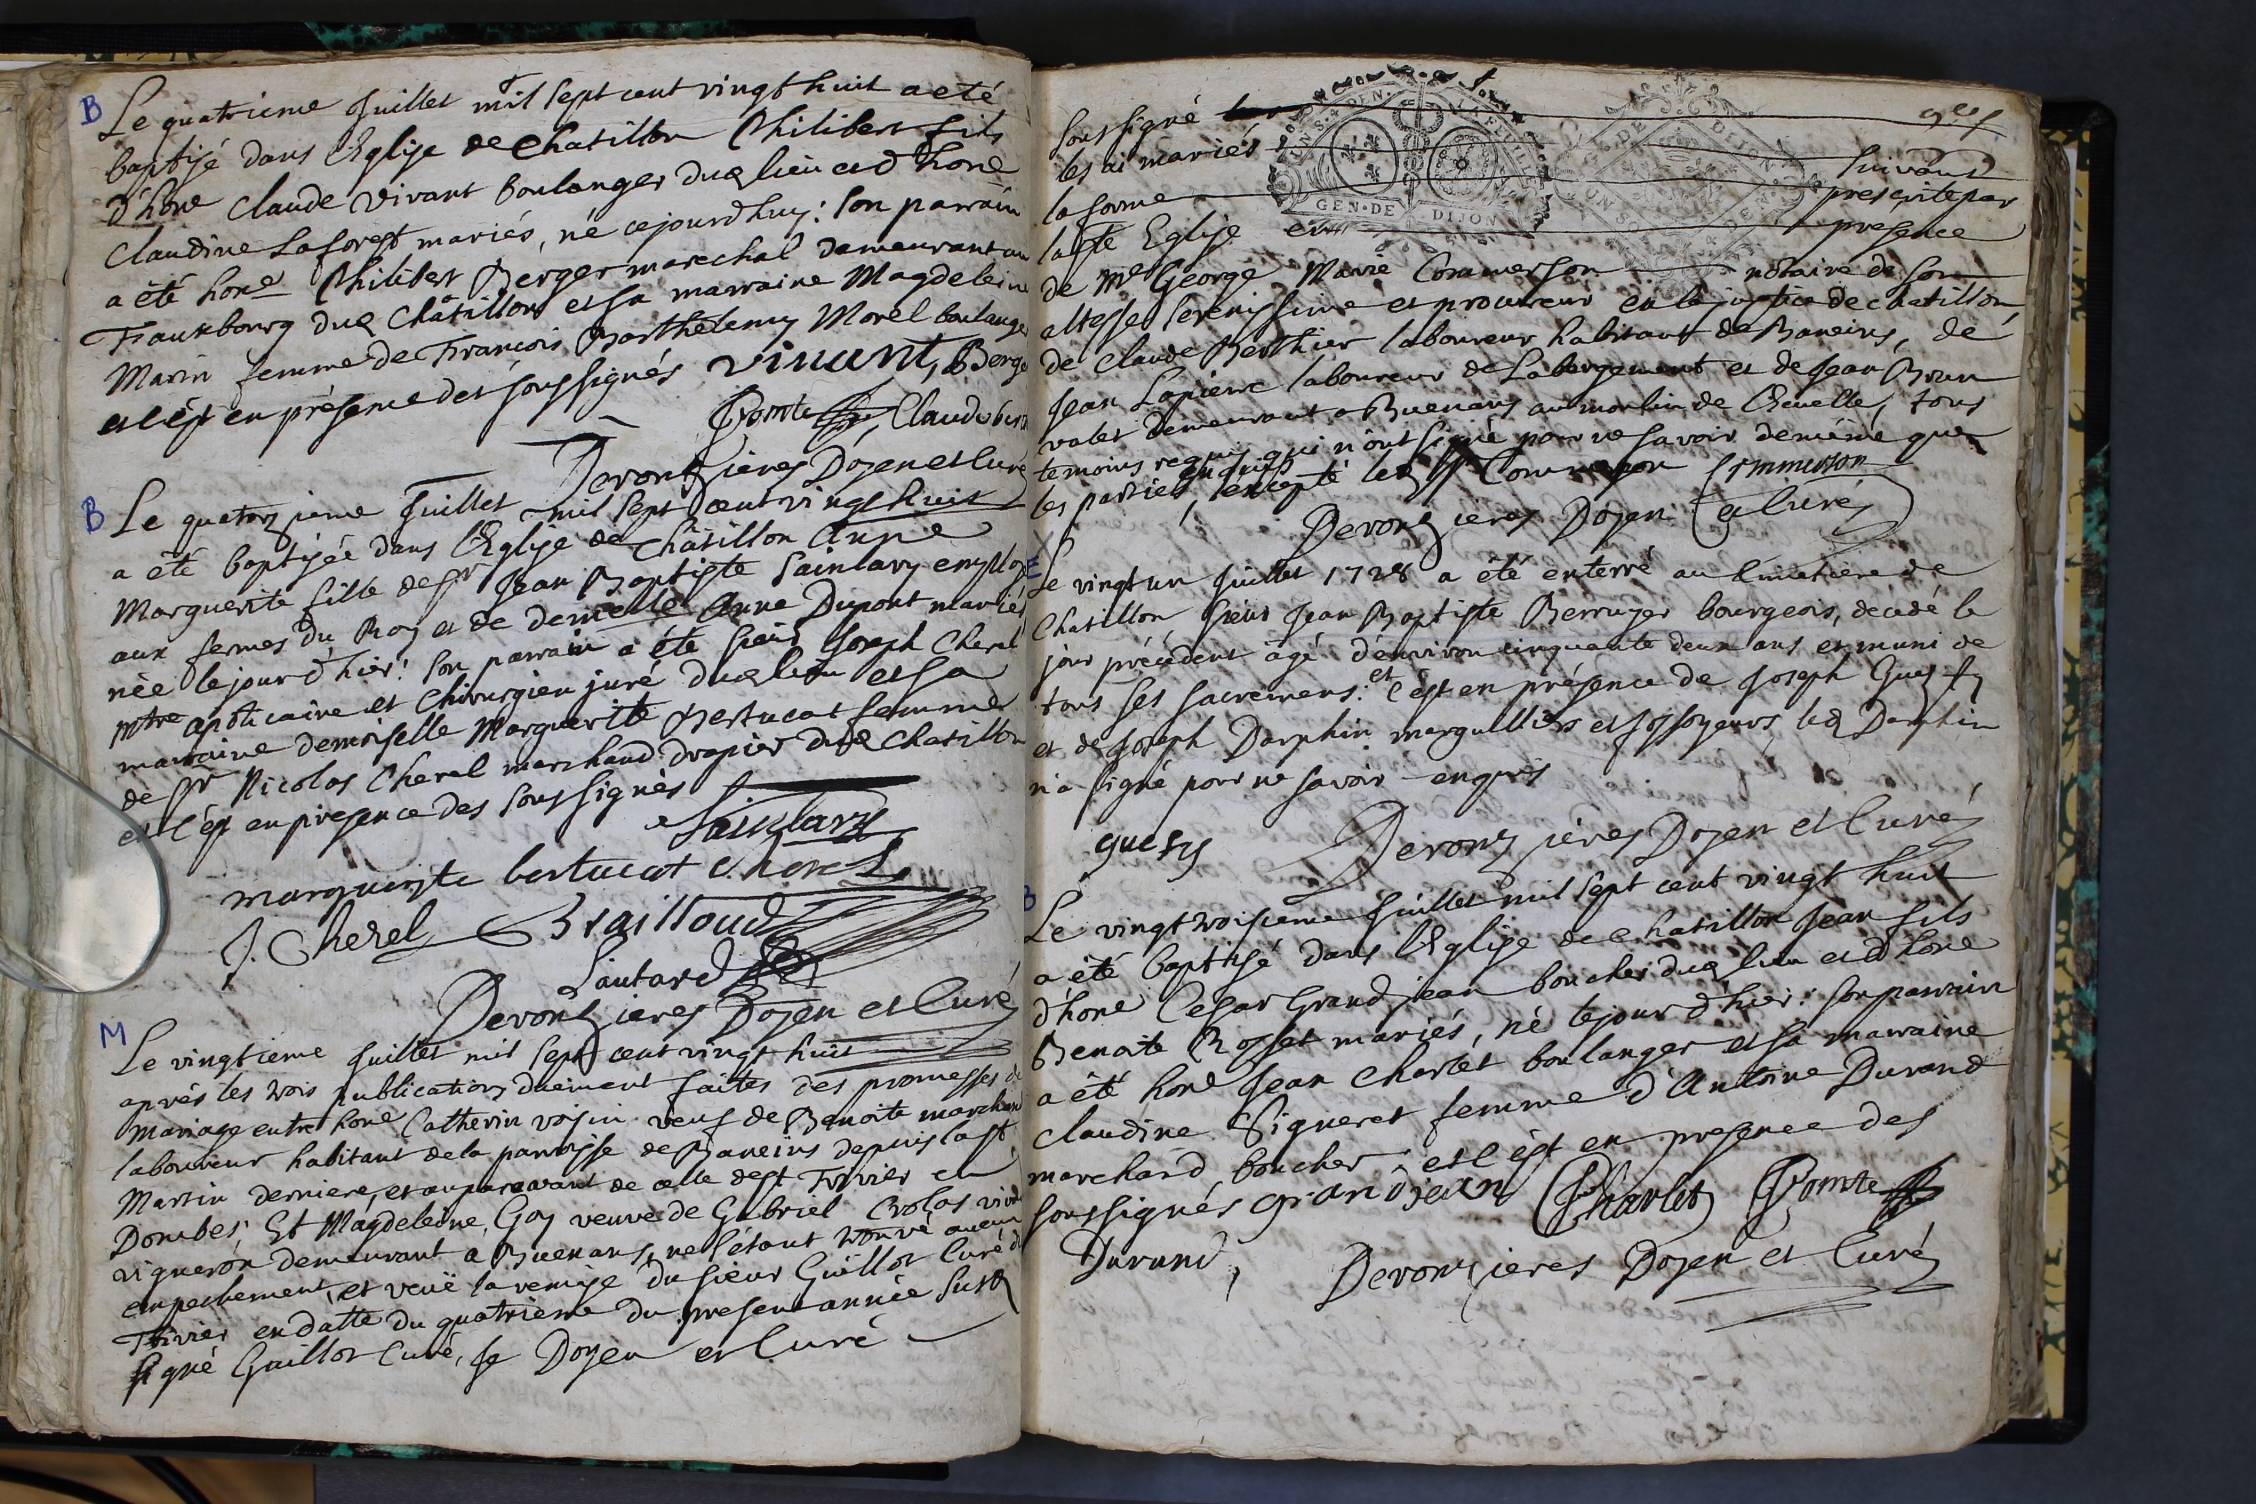 B
Le quatrieme Juillet mil sept cent vingt huit a eté
baptisé dans l'Eglise de Chatillon Philibert fils
d'hone Claude Vivant boulanger dud lieu et d'hone
Claudine Laforest mariés, né cejourdhuy: son parrain
a été hone Philibert Berger marechal demeurant au
Fauxbourg dud Châtillon et sa marraine Magdeleine
Marin femme de François Barthélemy Morel boulanger
et c'est en présence des soussignés vivant, Berge
Comte, Claude
Devonzieres Doyen et Curé
B
Le quatorzieme Juillet mil sept cent vingt huit
a été baptisée dans l'Eglise de Châtillon Anne
Marguerite fille de Sr Jean Baptiste Sainlary employé
aux fermes du Roy et de demelle Anne Dupont mariés
née le jour d'hier: son parrain a été sieur Joseph Cherel
mtre apoticaire et chirurgien juré dud lieu et sa
marraine demoiselle Marguerite Bertucat femme
de Sr Nicolas Cherel marchand drapier dud Chatillon
et c'est en presence des soussignés
Sainlary
marguerite bertucat Cherel
J. Cherel Brailloud
Lautard
Devonzieres Doyen et Curé
M
Le vingtieme Juillet mil sept cent vingt huit
après les trois publications dueiment faites des promesses de
mariage entre hone Catherin voisin veuf de Benoite marchand
laboureur habitant de la parroisse de Baneins depuis la St
Martin derniere, et auparavant de celle de St Trivier en
Dombes; Et Magdeleine Goy veuve de Gabriel Crolas vivant
vigneron demeurant à Buenans, ne s'étant trouvé aucun
empechement, et veuë la remise du sieur Guillot Curé de
Trivier en datte du quatrieme du present année susd
signé Guillot Curé, Je Doyen et Curé
soussigné
les ai mariés suivant
la forme prescrite par
la ste Eglise et en presence
GEN·DE DIJON
de Me George Marie Commerson notaire de son
altesse serenissime et procureur en la justice de chatillon,
de Claude Berthier laboureur habitant de Baneins, de
Jean Lapierre laboureur de Labergement et de Jean Brun
valet demeurant a Buenans au moulin de Chenelle, tous
temoins requis qui n'ont signé pour ne savoir de même que
les parties enquis, excepté led Sr Commerson Commerson
Devonzieres Doyen et Curé
E
Le vingt un Juillet 1728 a été enterré au cimetiere de
Chatillon sieur Jean Baptiste Berruyer bourgeois, decedé le
jour précédent âgé d'environ cinquante deux ans et muni de
tous ses sacremens: et c'est en présence de Joseph Guesty
et de Joseph Dauphin margulliers et fossoyeurs, led Dauphin
n'a signé pour ne savoir enquis
guesty Devonzieres Doyen et Curé
B
Le vingt troisieme Juillet mil sept cent vingt huit
a été baptisé dans l'Eglise de Chatillon Jean fils
d'hone Cesar Grandjean boucher dud lieu et d'hone
Benoite Rosset mariés, né le jour d'hier: son parrain
a été hone Jean Charlet boulanger et sa marraine
Claudine Signeret femme d'Antoine Durand
marchand boucher; et c'est en presence des
soussignés grandjean Charlet Comte
Durand, Devonzieres Doyen et Curé